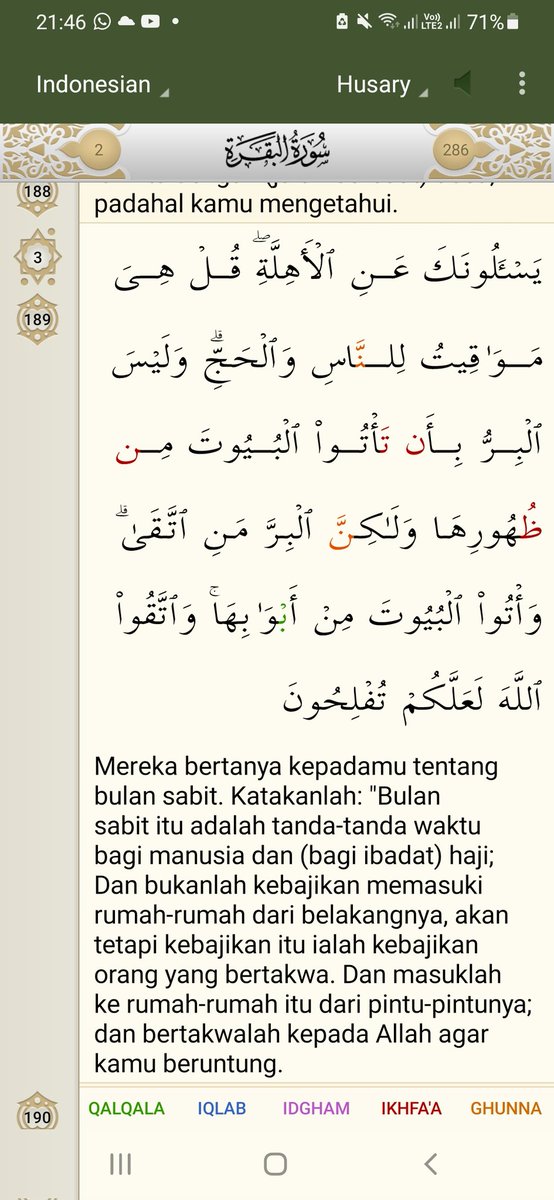 21:46
Vo))
LTE2
71%
Indonesian
Husary
2
سُورَةُ البَقَرَةِ
286
188
padahal kamu mengetahui.
3
189
يَسْـَٔلُونَكَ عَنِ ٱلْأَهِلَّةِ ۖ قُلْ هِىَ
مَوَٰقِيتُ لِلنَّاسِ وَٱلْحَجِّ ۗ وَلَيْسَ
ٱلْبِرُّ بِأَن تَأْتُوا۟ ٱلْبُيُوتَ مِن
ظُهُورِهَا وَلَـٰكِنَّ ٱلْبِرَّ مَنِ ٱتَّقَىٰ ۗ
وَأْتُوا۟ ٱلْبُيُوتَ مِنْ أَبْوَٰبِهَا ۚ وَٱتَّقُوا۟
ٱللَّهَ لَعَلَّكُمْ تُفْلِحُونَ
Mereka bertanya kepadamu tentang
bulan sabit. Katakanlah: "Bulan
sabit itu adalah tanda-tanda waktu
bagi manusia dan (bagi ibadat) haji;
Dan bukanlah kebajikan memasuki
rumah-rumah dari belakangnya, akan
tetapi kebajikan itu ialah kebajikan
orang yang bertakwa. Dan masuklah
ke rumah-rumah itu dari pintu-pintunya;
dan bertakwalah kepada Allah agar
kamu beruntung.
190
QALQALA IQLAB IDGHAM IKHFA'A GHUNNA